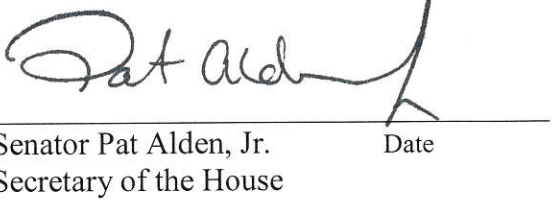 Pat Alden
Senator Pat Alden, Jr. Date
Secretary of the House